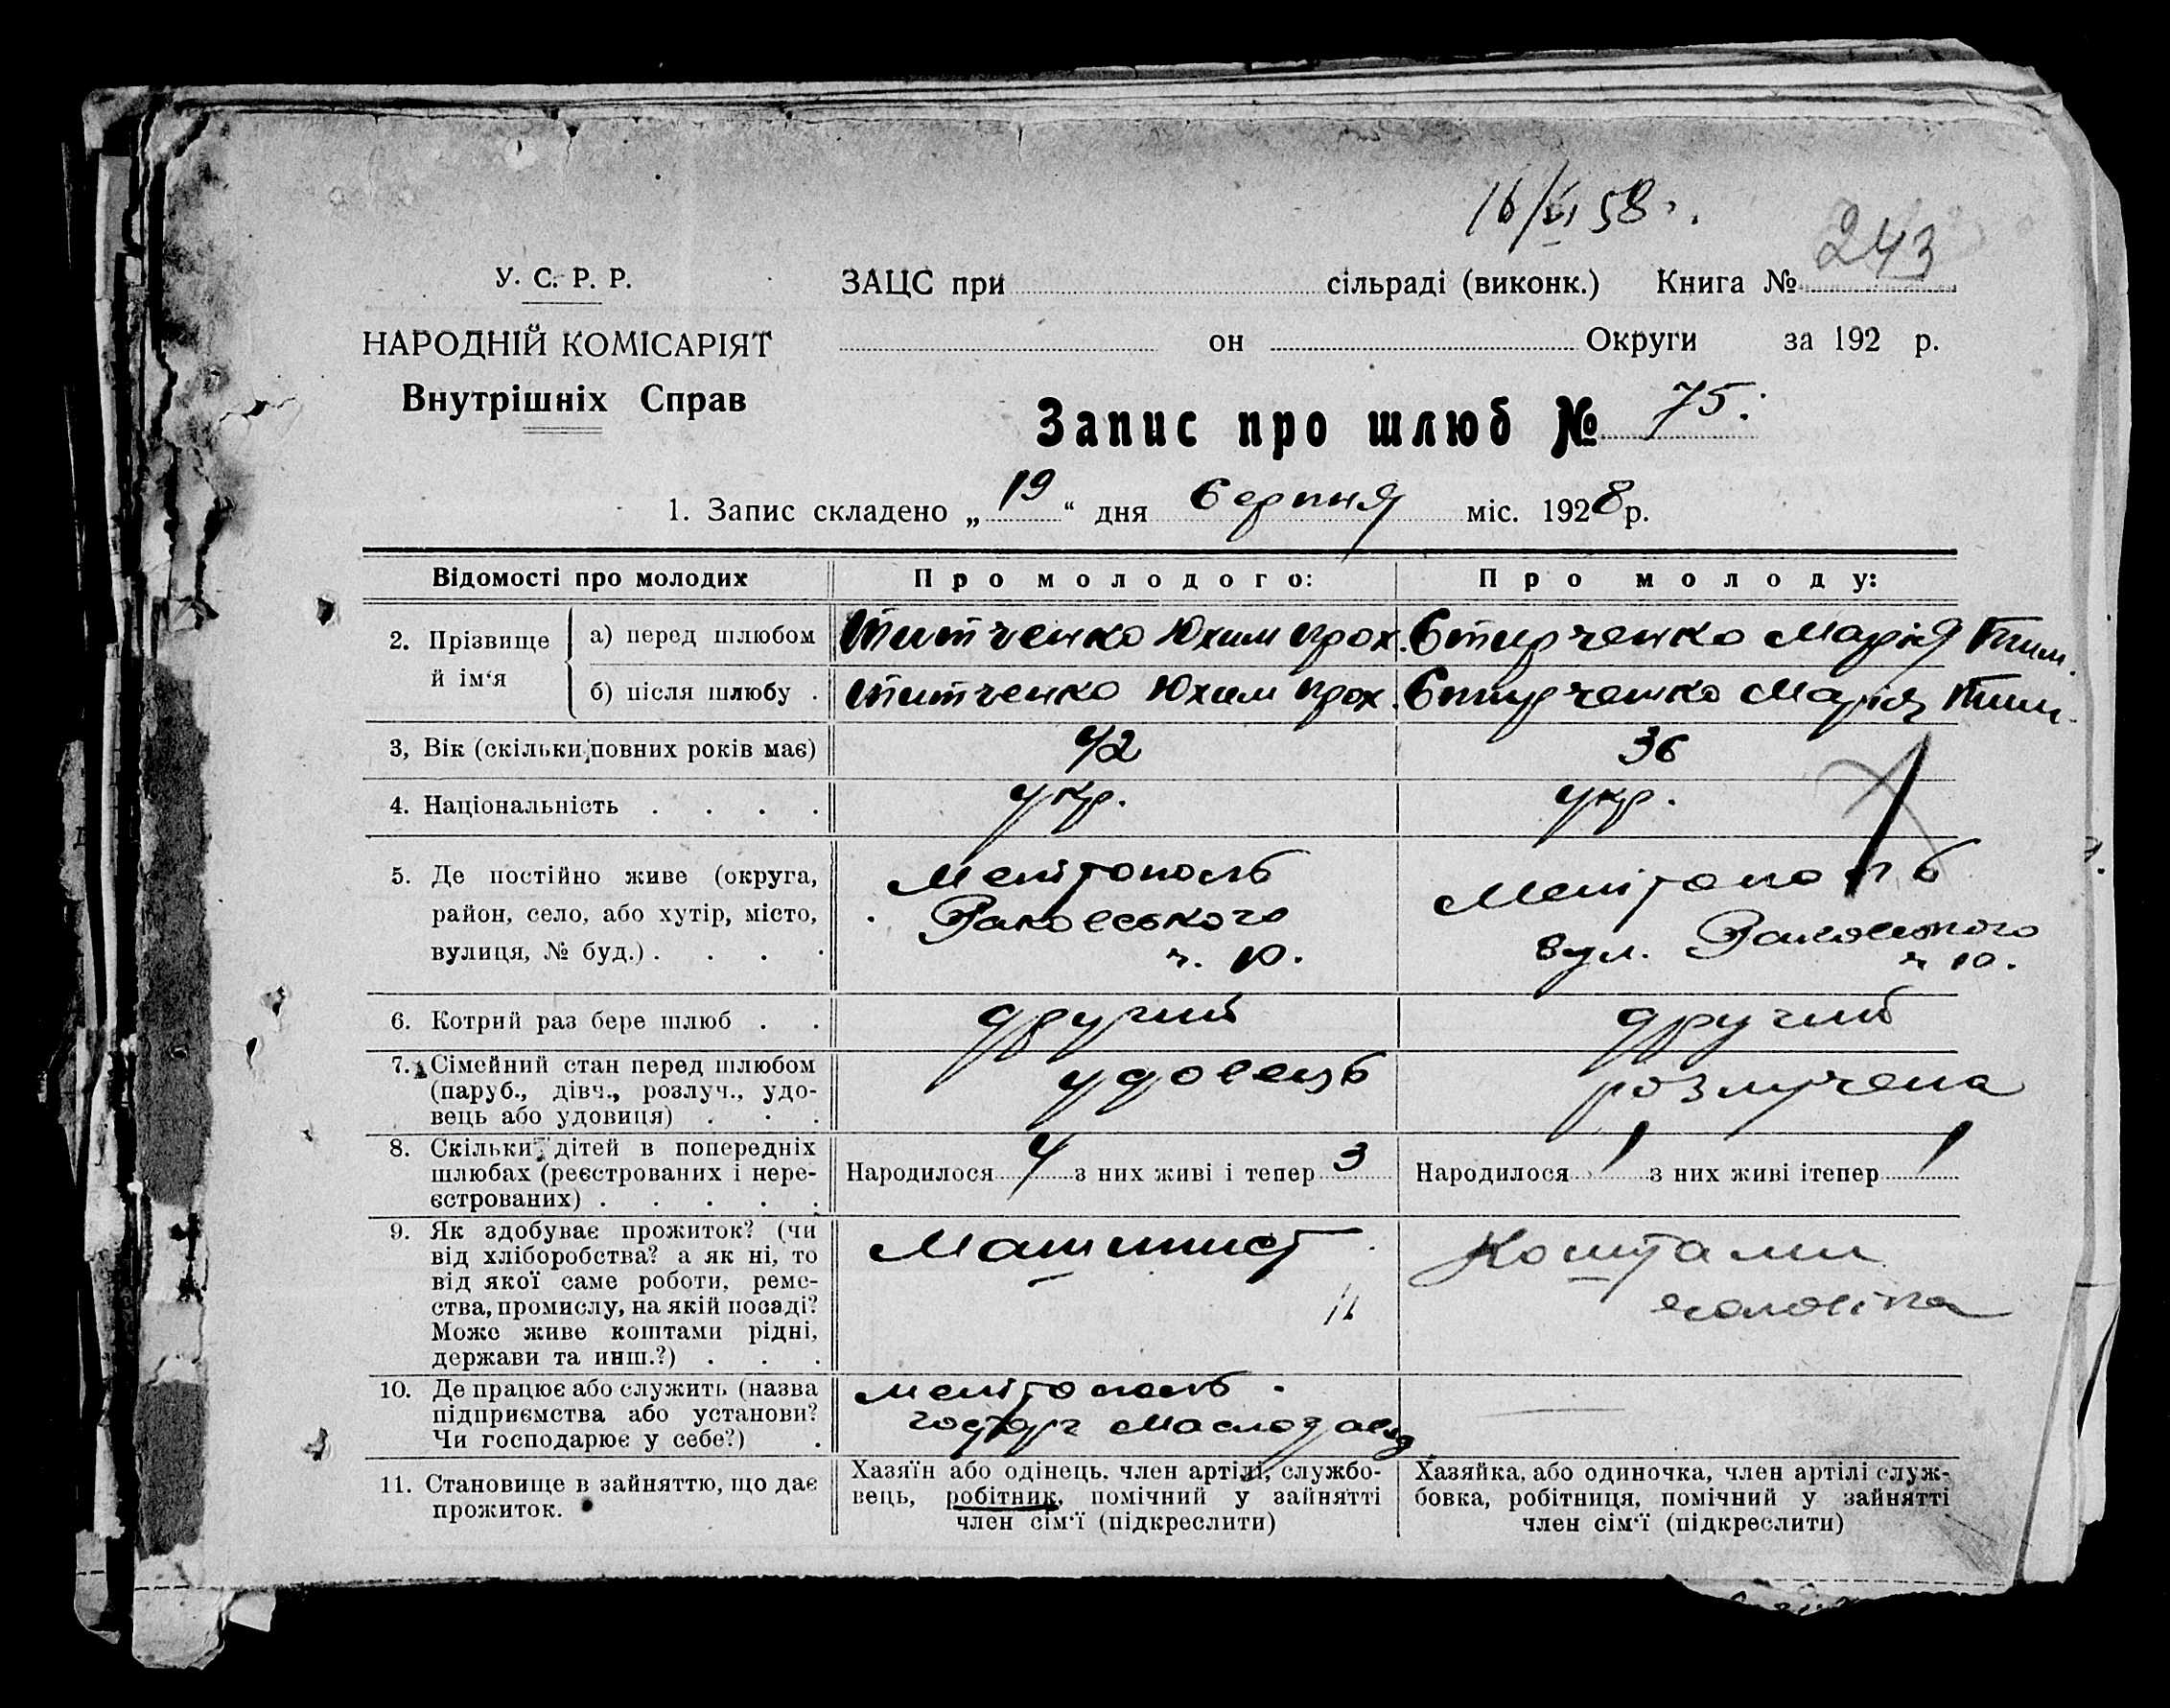 16/VI 58 г.
243
У. С. Р. Р.
ЗАЦС при сільраді (виконк.) Книга №
НАРОДНІЙ КОМІСАРІЯТ
он Округи за 192 р.
Внутрішніх Справ
Запис про шлюб № 75.
1. Запис складено „19“ дня Серпня міс. 1928 р.
Відомості про молодих
Про молодого:
Про молоду:
2. Прізвище й ім‘я
а) перед шлюбом
Титченко Юхим Прох.
Стирченко Марія Тим.
б) після шлюбу .
Титченко Юхим Прох.
Стирченко Марія Тим.
3, Вік (скільки повних років має)
42
36
4. Національність . . . .
укр.
укр.
5. Де постійно живе (округа,
район, село, або хутір, місто,
вулиця, № буд.) . . . .
Мелітополь
Раковського
ч. 10.
Мелітополь
вул. Раковського
ч 10.
6. Котрий раз бере шлюб . .
другий
другий
7. Сімейний стан перед шлюбом
(паруб., дівч., розлуч., удо-
вець або удовиця) . . .
удовець
розлучена
8. Скільки дітей в попередніх
шлюбах (реєстрованих і нере-
єстрованих) . . . . .
Народилося 4 з них живі і тепер 3
Народилося 1 з них живі ітепер 1
9. Як здобуває прожиток? (чи
від хліборобства? а як ні, то
від якої саме роботи, реме-
ства, промислу, на якій посаді?
Може живе коштами рідні,
держави та инш.?) . . .
Машинист
Коштами
чоловіка
10. Де працює або служить (назва
підприємства або установи?
Чи господарює у себе?) .
Мелітополь
Маслозавод
11. Становище в зайняттю, що дає
прожиток.
Хазяїн або одінець. член артілі, службо-
вець, робітник, помічний у зайнятті
член сім‘ї (підкреслити)
Хазяйка, або одиночка, член артілі служ-
бовка, робітниця, помічний у зайнятті
член сім‘ї (підкреслити)